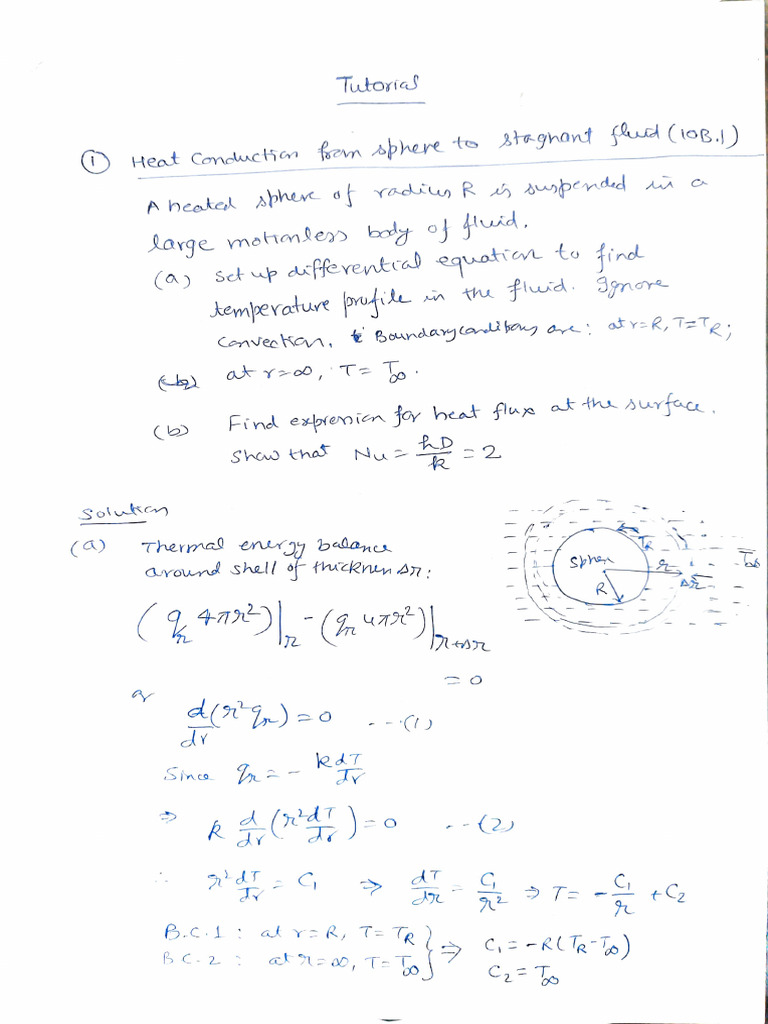 Tutorial
① Heat Conduction from sphere to stagnant fluid (10B.1)
A heated sphere of radius R is suspended in a
large motionless body of fluid.
(a) set up differential equation to find
temperature profile in the fluid. Ignore
convection. Boundary conditions are: at r=R, T=T_R;
at r=∞, T=T_∞.
(b) Find expression for heat flux at the surface.
Show that Nu = hD/k = 2
Solution
(a) Thermal energy balance
around shell of thickness Δr:
Sphere
R
T_R
r
Δr
T_∞
(q_r 4πr²)|_r - (q_r 4πr²)|_r+Δr
= 0
or
d/dr (r² q_r) = 0 ---(1)
Since q_r = - k dT/dr
⇒ k d/dr (r² dT/dr) = 0 ---(2)
∴ r² dT/dr = C₁ ⇒ dT/dr = C₁/r² ⇒ T = - C₁/r + C₂
B.C.1 : at r=R, T=T_R } ⇒ C₁ = -R(T_R - T_∞)
B.C.2 : at r=∞, T=T_∞ } C₂ = T_∞